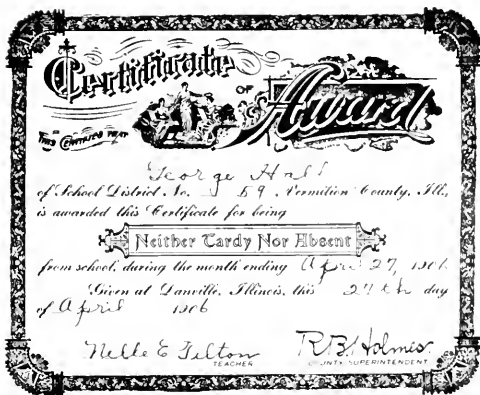 Certificate
OF
Award
THIS CERTIFIES THAT
George Hall
of School District No. 59, Vermilion County, Ill.,
is awarded this Certificate for being
Neither Tardy Nor Absent
from school, during the month ending April 27, 1906
Given at Danville, Illinois, this 27th day
of April 1906
Nelle E Tilton R.B. Holmes
TEACHER COUNTY SUPERINTENDENT